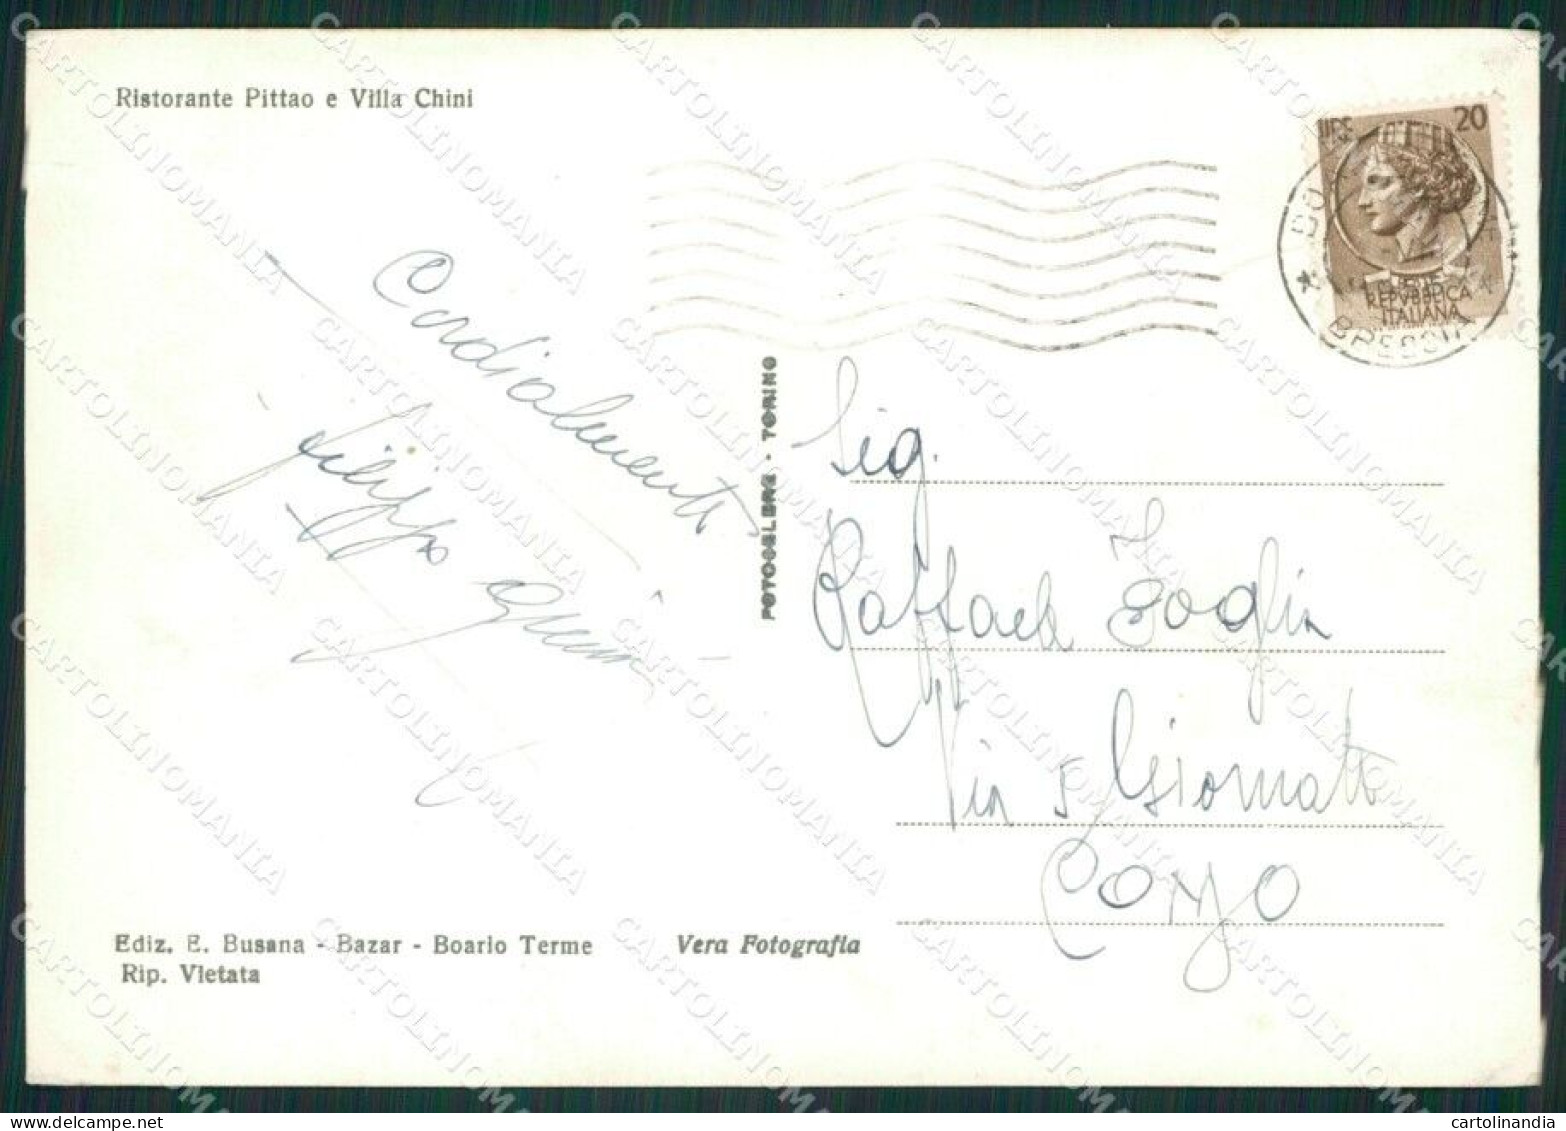 Ristorante Pittao e Villa Chini
LIRE 20
REPVBBLICA
ITALIANA
BRESCIA
Cordialmente
Filippo
FOTOCELERE - TORINO
Sig.
Raffaele Foglia
Via 5 Giornate
Ediz. E. Busana - Bazar - Boario Terme
Vera Fotografia
Rip. Vietata
CARTOLINOMANIA
cartolinandia